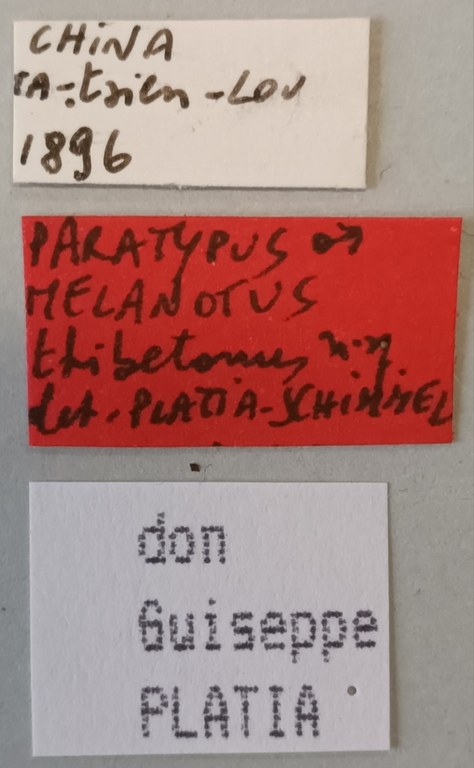 CHINA
TA-tsien-LOU
1896
PARATYPUS ♂
MELANOTUS
thibetanus n.sp
det. PLATIA-SCHIMMEL
don
Guiseppe
PLATIA